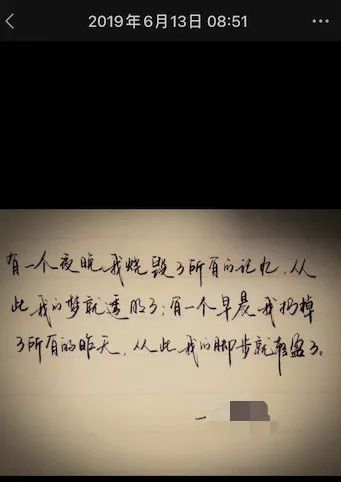 2019年6月13日 08:51
有一个夜晚我烧毁了所有的记忆,从
此我的梦就透明了;有一个早晨我扔掉
了所有的昨天,从此我的脚步就轻盈了。